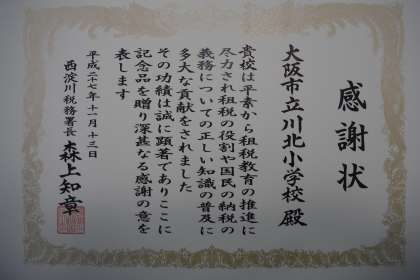 感謝状
大阪市立川北小学校 殿
貴校は平素から租税教育の推進に
尽力され租税の役割や国民の納税の
義務についての正しい知識の普及に
多大な貢献をされました
その功績は誠に顕著でありここに
記念品を贈り深甚なる感謝の意を
表します
平成二十七年十一月十三日
西淀川税務署長 森上知章